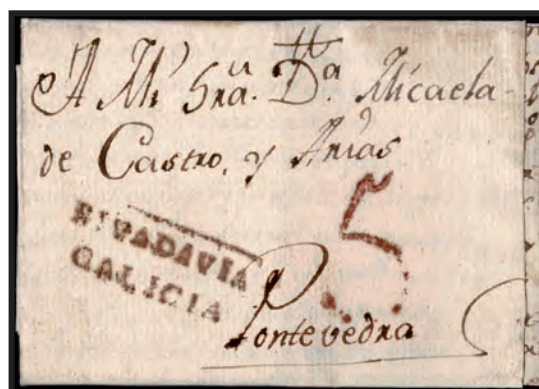 A Mi Sra. Da. Micaela
de Castro, y Arias
RIVADAVIA
GALICIA
5
Pontevedra